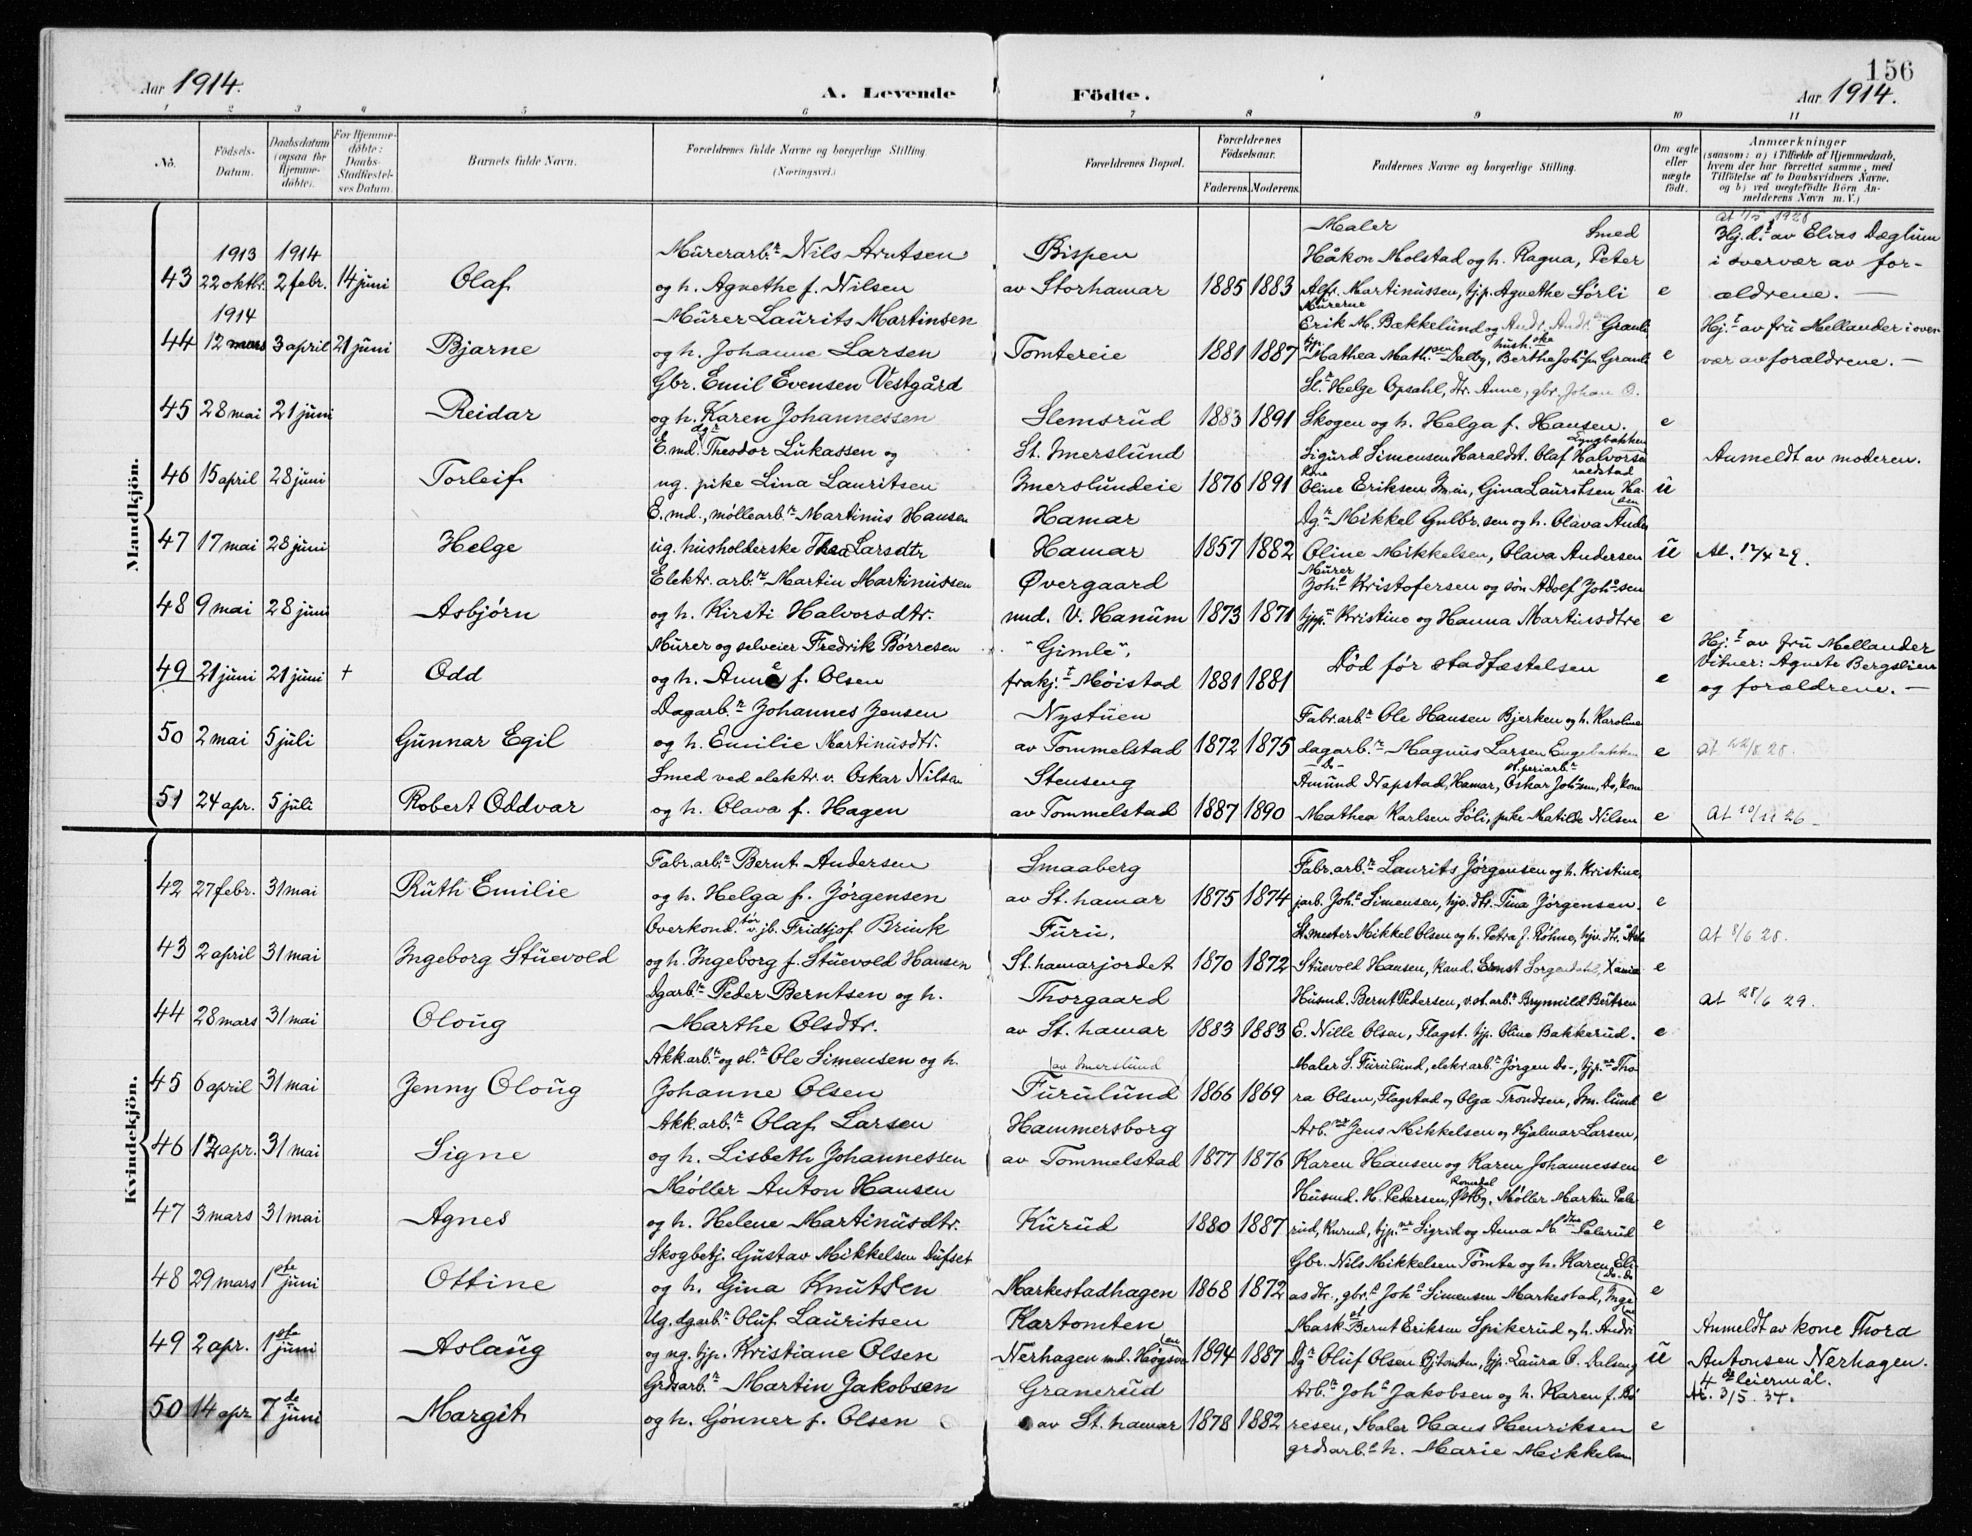 156
Aar 1914.
A. Levende Födte.
Aar 1914.
1 2 3 4 5 6 7 8 9 10 11
No. Födsels-Datum. Daabsdatum (ogsaa for Hjemme-döbte). For Hjemme-döbte: Daabs-Stadfæstelses Datum. Barnets fulde Navn. Forældrenes fulde Navne og borgerlige Stilling. (Næringsvei.) Forældrenes Bopæl. Forældrenes Födselsaar. Faderens. Moderens. Faddernes Navne og borgerlige Stilling. Om ægte eller uægte födt. Anmærkninger (saasom: a) i Tilfælde af Hjemmedaab, hvem der har forrettet samme, med Tilföielse af to Daabsvidners Navne, og b) ved uægtefödte Börn Anmelderens Navn m. V.)
Mandkjön.
1913 1914 Murerarb.r Nils Arntsen Bispen Maler Smed
Håkon Molstad og h. Ragna, Peter Hj.d.t av Elias Dæglum
43 22 oktbr. 2 febr. 14 juni Olaf og h. Agnethe f. Nilsen av Storhamar 1885 1883 Alfr. Martinussen, tjp. Agnethe Sörli e i overvær av forældrene. —
1914 Murer Laurits Martinsen Murerne Erik M. Bækkelund og Andr. Hj.t av fru Mellander i over-
44 12 mars 3 april 21 juni Bjarne og h. Johanne Larsen Tomtereie 1881 1887 Mathea Math.sen Dalby, Berthe e vær av forældrene. —
Gbr. Emil Evensen Vestgård Sl.r Helge Opsahl, dtr. Anne, gbr. Johan O.
45 28 mai 21 juni Reidar og h. Karen Johannessen Slemsrud 1883 1891 Skogen og h. Helga f. Hansen. e
E.md. dgr Theodor Lukassen og St. Imerslund Sigurd Simensen Haraldst. Olaf Halvorsen Lyngbakken
46 15 april 28 juni Torleif ug. pike Lina Lauritsen Imerslundeie 1876 1891 Oline Eriksen, Gina Lauritsen u Anmeldt av moderen.
E. md., møllearb.r Martinus Hansen Hamar Dg.r Mikkel Gulbr.sen og h. Olava Ander
47 17 mai 28 juni Helge ug. husholderske Thea Larsdtr Hamar 1857 1882 Oline Mikkelsen, Olava Andersen u At. 12/4 29.
Elektr. arb.r Martin Martinussen Øvergaard Murer Joh.s Kristofersen og søn Adolf Joh.sen
48 9 mai 28 juni Asbjørn og h. Kirsti Halvorsdtr. nrd. V. Hanum 1873 1871 tjp. Kristine og Hanna Martinsdtre e
Murer og selveier Fredrik Børresen "Gimle", Hj.t av fru Mellander
49 21 juni 21 juni + Odd og h. Anna f. Olsen frakj.t Møistad 1881 1881 Död før stadfæstelsen e Vitner: Agnete Bergslien og forældrene. —
Dagarb.r Johannes Jensen Nystuen Fabr. arb.r Ole Hansen Bjerken og h. Karoline
50 2 mai 5 juli Gunnar Egil og h. Emilie Martinusdtr. av Tommelstad 1872 1875 dagarb.r Magnus Larsen Engebakken e at 22/8 28.
Smed ved elektr. v. Oskar Nilsen Stenseng Amund Napstad, Hamar, Oskar Joh.sen, Do,
51 24 apr. 5 juli Robert Oddvar og h. Olava f. Hagen av Tommelstad 1887 1890 Mathea Karlsen Söli, pike Matilde Nilsen e At 10/11 26
Kvindekjön.
Fabr. arb.r Bernt Andersen Smaaberg Fabr. arb.r Laurits Jørgensen og h. Kristine,
42 27 febr. 31 mai Ruth Emilie og h. Helga f. Jørgensen av St. hamar 1875 1874 jarb. Joh.s Simensen, hjv. dtr. Tina Jørgensen. e
Overkond. v. jb. Fridtjof Brink Furu, St.mester Mikkel Olsen og h. Petra f. Röhne, hjv. dtr.
43 2 april 31 mai Ingeborg Stuevold og h. Ingeborg f. Stuevold Hansen St.hamarjordet 1870 1872 Stuevold Hansen, Kand. Ernst Sorgendahl, Xania e At 8/6 28.
Dgarb.r Peder Berntsen og h. Thorgaard Husmd. Bernt Pedersen, v.st.arb.r Brynnild Berntsen At 28/6 29.
44 28 mars 31 mai Oloug Marthe Olsdtr. av St. hamar 1883 1883 E. Nille Olsen, Flagst. tjp. Oline Bakkerud. e
Akk.arb.r og sl.r Ole Simensen og h. av Imerslund Maler S. Furulund, elektr. arb.r Jørgen Do-, tjp. Tho-
45 6 april 31 mai Jenny Oloug Johanne Olsen Furulund 1866 1869 ra Olsen, Flagstad og Olga Trondsen, Im.lund e
Akk.arb.r Olaf Larsen Hammersborg Arb.rne Jens Mikkelsen og Hjalmar Larsen,
46 12 apr. 31 mai Signe og h. Lisbeth Johannessen av Tommelstad 1877 1876 Karen Hansen og Karen Johannessen e
Møller Anton Hansen Husmd. H. Pedersen, Østby, Romedal Møller Martin Pale
47 3 mars 31 mai Agnes og h. Helene Martinusdtr. Kurud 1880 1887 rud, Kurud, tjp.ne Sigrid og Anna M. Palerud e
Skogbetj. Gustav Mikkelsen Dufset Gbr. Nils Mikkelsen Tomte og h. Karen Eli-
48 29 mars 1ste juni Ottine og h. Gina Knutsen Markestadhagen 1868 1872 asdtr., gbr.s Joh.s Simensen Markestad, Inge e
Ug. dgarb.r Oluf Lauritsen Kartomten Mask.st Bernt Eriksen Spikerud og h. Andr. Anmeldt av kone Thora
49 2 apr. 1ste juni Aslaug og ug. tjp. Kristiane Olsen Nerhagen md. 1894 1887 Dg.r Oluf Olsen, tjp. Laura O. Dalseng u Antonsen Nerhagen.
Grdsarb.r Martin Jakobsen Granerud Arb.r Joh.s Jakobsen og h. Karen f. Bö 4de leiermål.
50 14 apr 7de juni Margit og h. Gönner f. Olsen av St. hamar 1878 1882 resen, Maler Hans Henriksen e At. 3/5. 34.
grdsarb.s h. Marie Mikkelsen